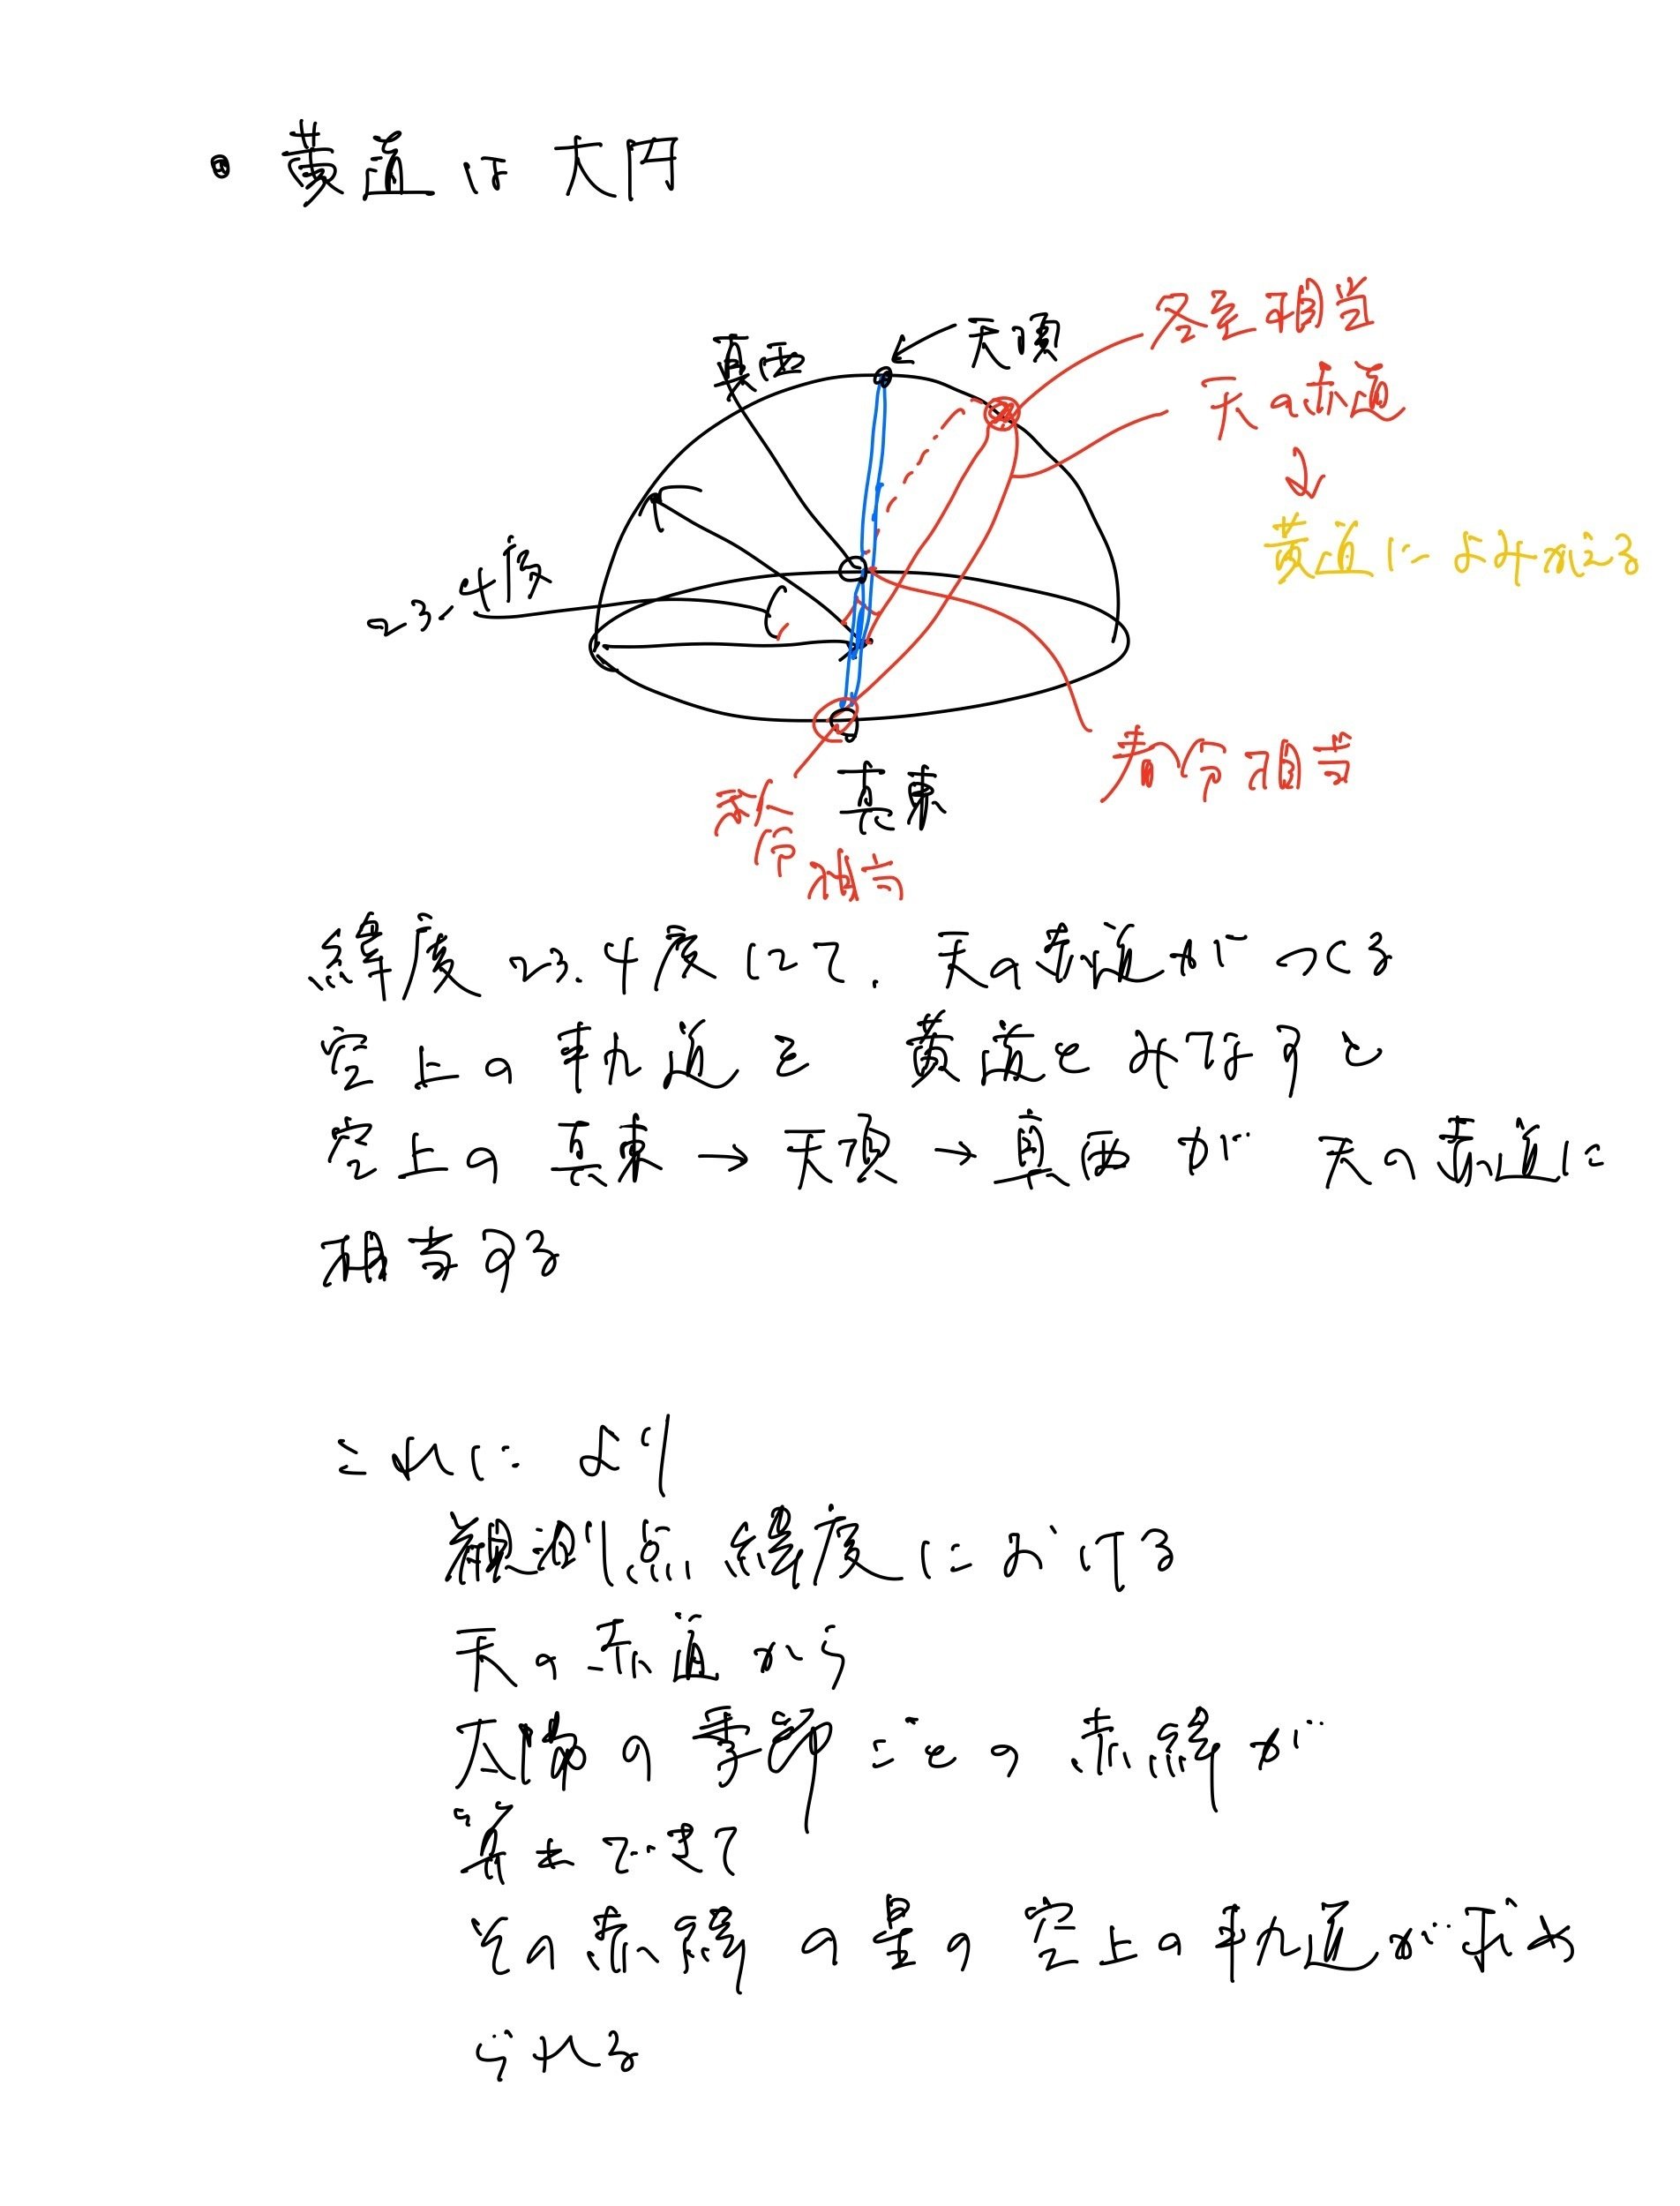 ・黄道は大円
冬至相当
天頂
真西
天の赤道
↓
黄道によみかえる
23.4度
春分相当
真東
秋分
相当
緯度23.4度にて、天の赤道がつくる
空上の軌道を黄道とみなすと
空上の真東→天頂→真西が天の赤道に
相当する
これにより
観測点緯度における
天の赤道から
太陽の季節ごとの赤緯が
算出できて
その赤緯の星の空上の軌道が求め
られる